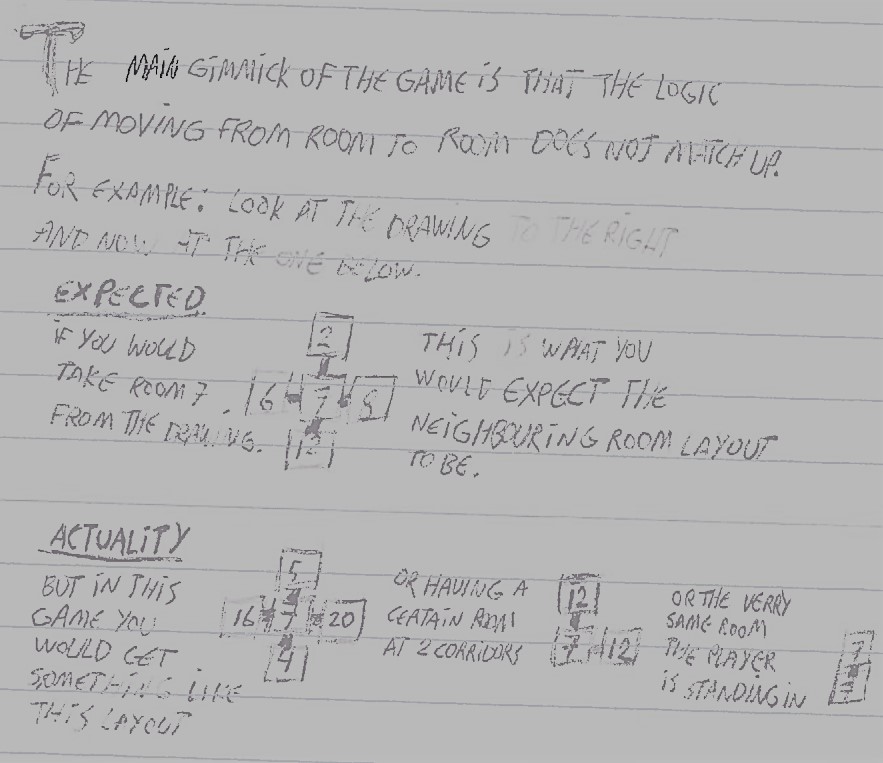 THE MAIN GIMMICK OF THE GAME IS THAT THE LOGIC
OF MOVING FROM ROOM TO ROOM DOES NOT MATCH UP.
FOR EXAMPLE: LOOK AT THE DRAWING TO THE RIGHT
AND NOW AT THE ONE BELOW.
EXPECTED
IF YOU WOULD
TAKE ROOM 7
FROM THE DRAWING.
2
6 7 8
12
THIS IS WHAT YOU
WOULD EXPECT THE
NEIGHBOURING ROOM LAYOUT
TO BE.
ACTUALITY
BUT IN THIS
GAME YOU
WOULD GET
SOMETHING LIKE
THIS LAYOUT
5
16 7 20
4
OR HAVING A
CERTAIN ROOM
AT 2 CORRIDORS
12
7 12
OR THE VERRY
SAME ROOM
THE PLAYER
IS STANDING IN
7
7